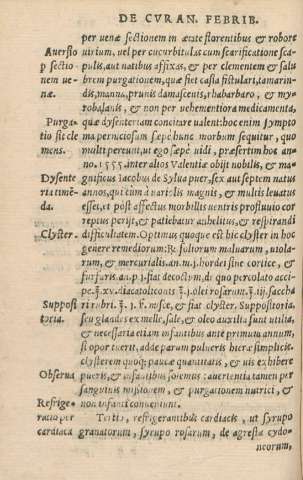 DE CVRAN. FEBRIB.
per venæ sectionem in ætate florentibus & robore
Auersio uirium, uel per cucurbitulas cum scarificatione sca-
p sectio pulis, aut natibus affixas, & per clementem & salu
nem ue- brem purgationem, quæ fiet casia fistulari, tamarin-
næ. dis, manna, prunis damascenis, rhabarbaro, & my-
robalanis, & non per uehementiora medicamenta,
Purga- quæ dysenteriam concitare ualent: hoc enim sympto
tio sit cle ma perniciosum sæpè hunc morbum sequitur, quo
mens. multi pereunt, ut ego sæpè uidi, præsertim hoc an-
no. 1555. inter alios Valentiæ obijt nobilis, & ma-
Dysente gnificus Iacobus de Sylua puer, sex aut septem natus
ria timē- annos, qui cum à uariolis magnis, & multis leuatus
da. esset, & post affectus morbilli uentris profluuio cor
reptus perijt, & patiebatur anhelitus, & respirandi
Clyster. difficultatem. Optimus quoque est hic clyster in hoc
genere remediorum: ℞. foliorum maluarum, uiola-
rum, & mercurialis. an. m.j. hordei sine cortice, &
furfuris. an. p.j. fiat decoctum, de quo percolato acci-
pe. ℥.xv. diacatoliconis ℥.j. olei rosarum. ℥.iij. saccha
Supposi ri rubri. ℥.j. F. misce, & fiat clyster. Suppositoria,
toria. seu glandes ex melle, sale, & oleo auxilio sunt utilia,
& necessaria etiam infantibus ante primum annum,
si opor tuerit, adde parum pulueris hieræ simplicis.
clysterem quoq; paucæ quantitatis, & uis exhibere
Observa pueris, & infantibus solemus: auertentia tamen per
sanguinis missionem, & purgationem nutrici, &
Refrige- non infanti conueniunt.
ratio per Tertiò, refrigerantibus cardiacis, ut syrupo
cardiaca granatorum, syrupo rosarum, de agresta cydo-
neorum,